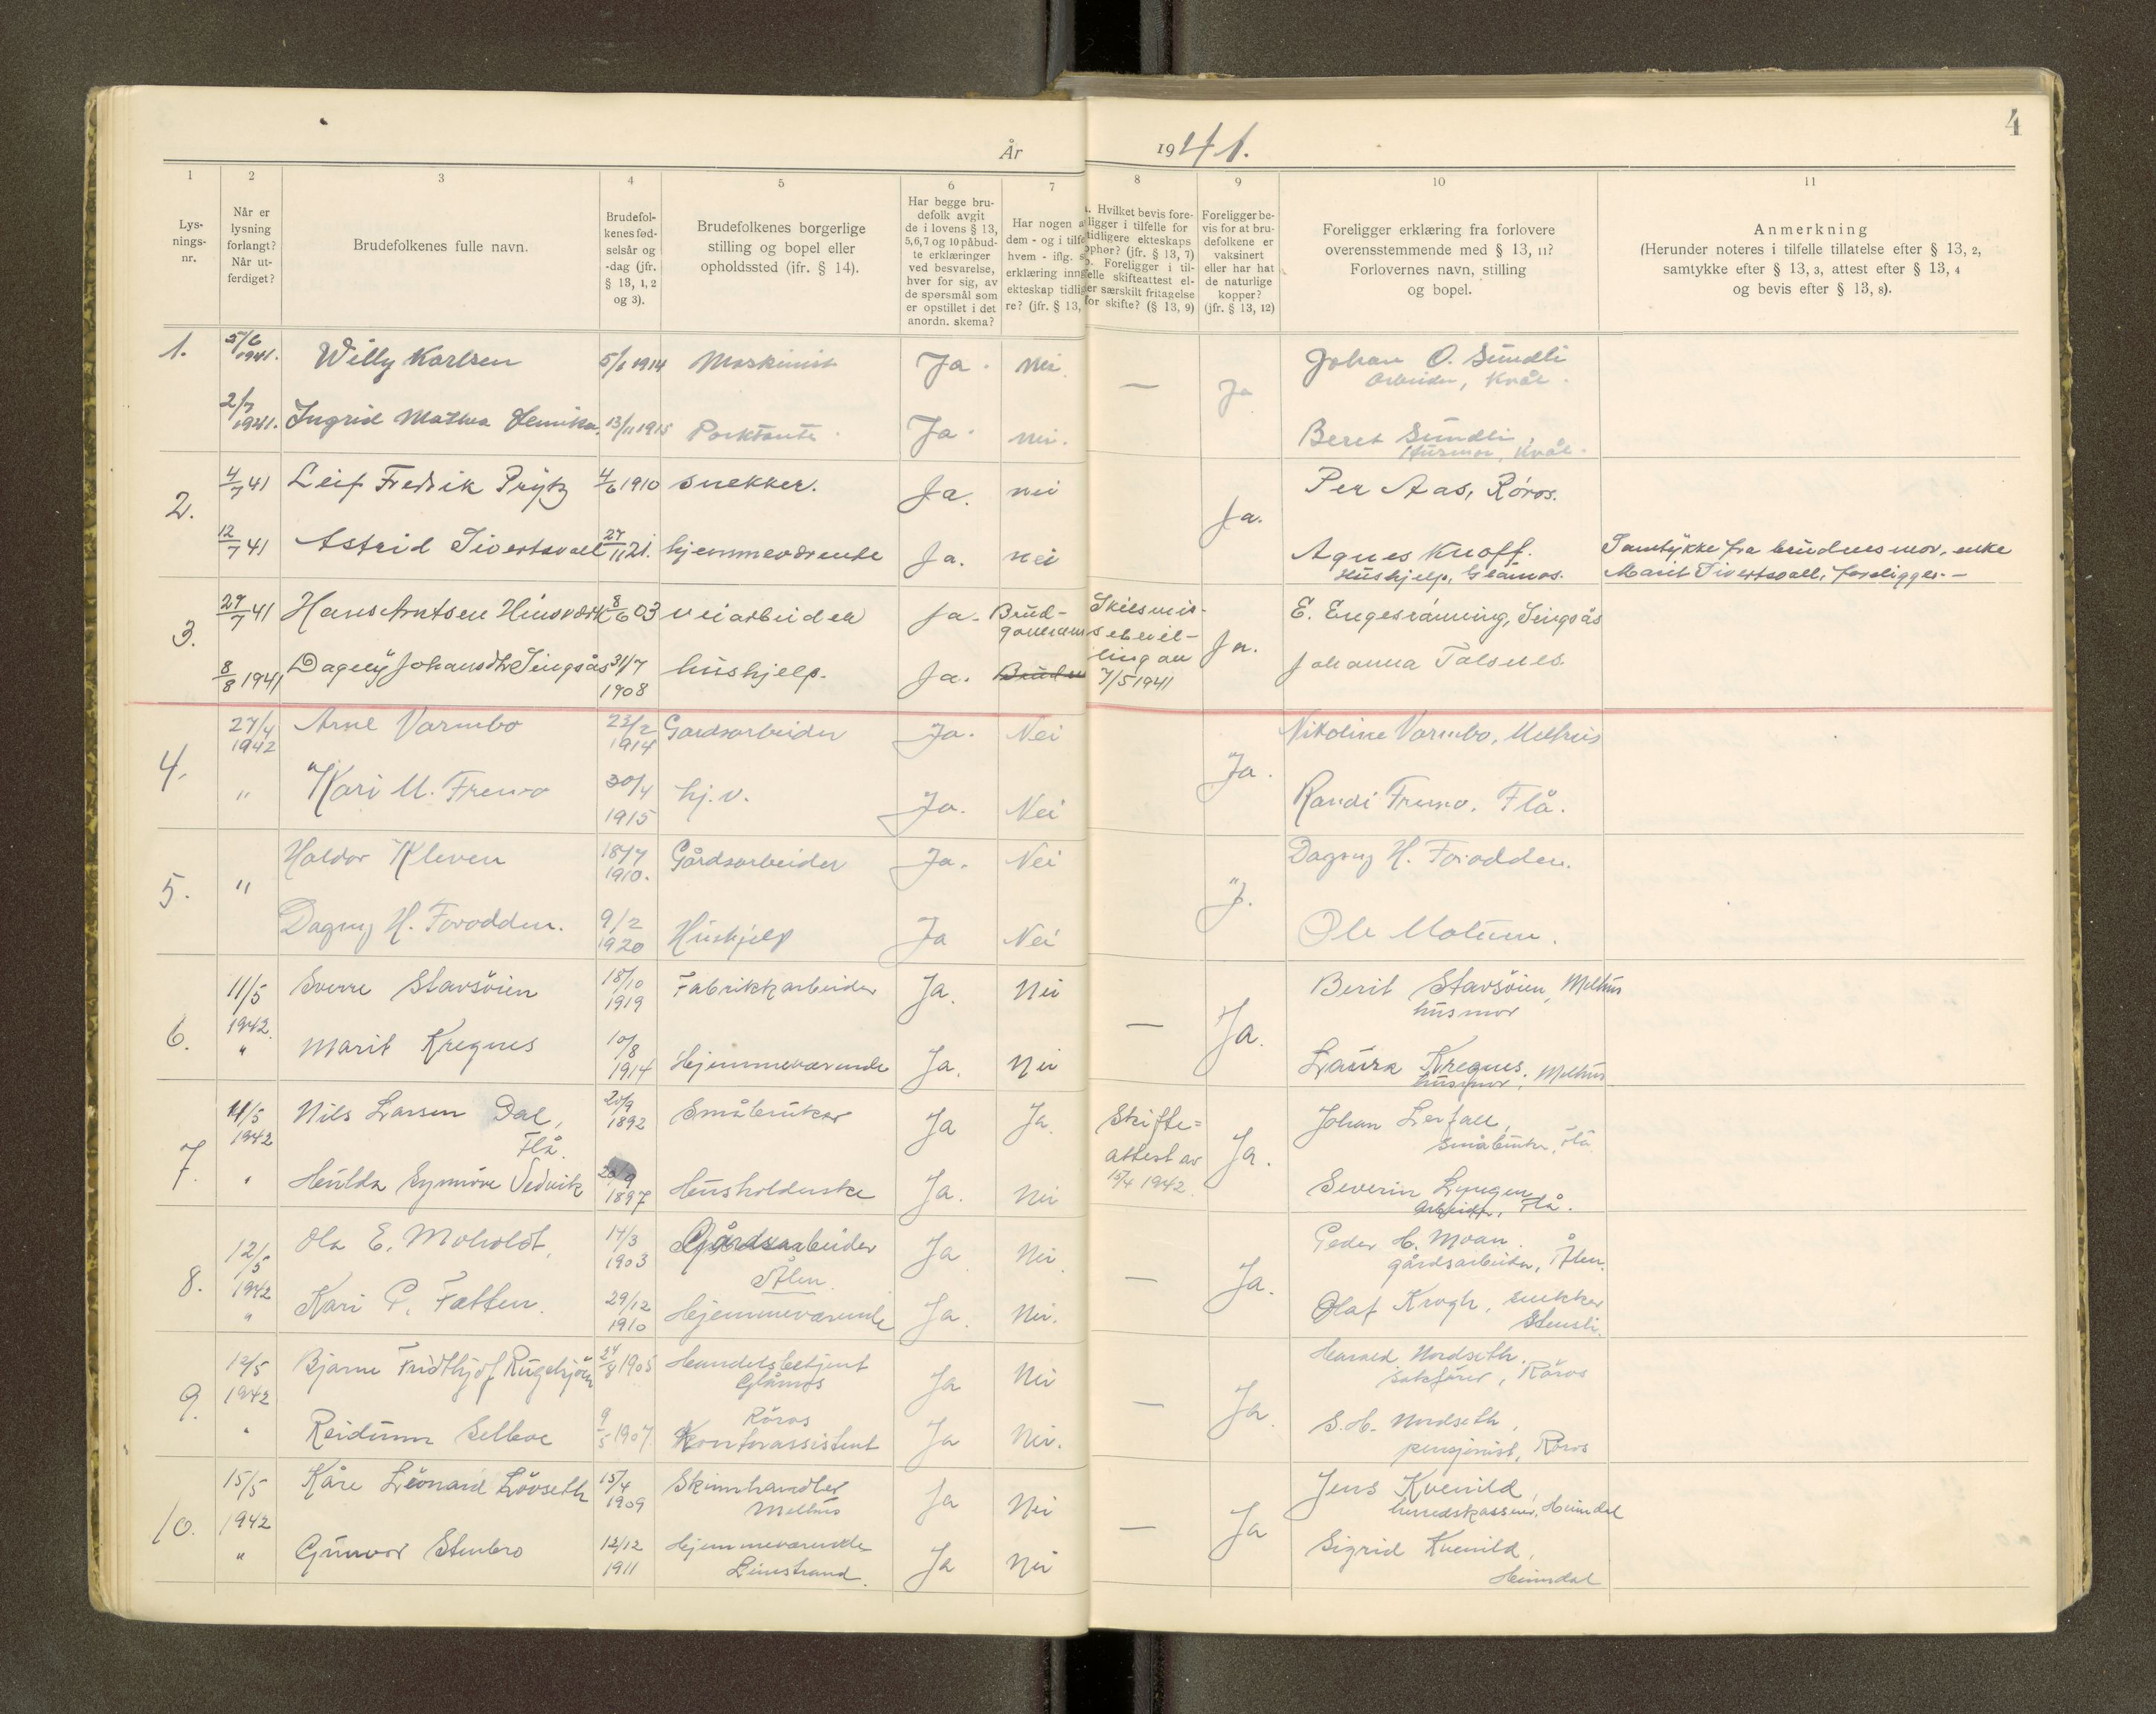 4
År 1941.
1 2 3 4 5 6 7 8 9 10 11
Lys-
nings-
nr.
Når er
lysning
forlangt?
Når ut-
ferdiget?
Brudefolkenes fulle navn.
Brudefol-
kenes fød-
selsår og
-dag (jfr.
§ 13, 1, 2
og 3).
Brudefolkenes borgerlige
stilling og bopel eller
opholdssted (ifr. § 14).
Har begge bru-
defolk avgit
de i lovens § 13,
5,6,7 og 10 påbud-
te erklæringer
ved besvarelse,
hver for sig, av
de spørsmål som
er opstillet i det
anordn. skema?
Har nogen a
dem - og i tilfe
hvem - iflg. s
erklæring inng
ekteskap tidlig
re? (jfr. § 13,
a. Hvilket bevis fore-
ligger i tilfelle for
tidligere ekteskaps
ophør? (jfr. § 13, 7)
b. Foreligger i til-
felle skifteattest el-
er særskilt fritagelse
for skifte? (§ 13, 9)
Foreligger be-
vis for at bru-
defolkene er
vaksinert
eller har hat
de naturlige
kopper?
(jfr. § 13, 12)
Foreligger erklæring fra forlovere
overensstemmende med § 13, 11?
Forlovernes navn, stilling
og bopel.
Anmerkning
(Herunder noteres i tilfelle tillatelse efter § 13, 2,
samtykke efter § 13, 3, attest efter § 13, 4
og bevis efter § 13, 8).
1. 5/6 1941. Willy Karlsen 5/6 1914 Maskinist Ja. Nei. — Ja Johan O. Sundli
Arbeider, Kvål.
2/7 1941. Ingrid Mathea 13/11 1915 Ja. nei. Beret Sundli,
Husmor, Kvål.
2. 4/7 41 Leif Fredrik Prytz 4/6 1910 snekker. Ja. nei Ja. Per Aas, Röros.
12/7 41 Astrid Sivertsvoll 27/11 21. hjemmeværende Ja. nei Agnes Knoff.
Hushjelp, Glåmos.
Samtykke fra brudens mor, enke
Marit Sivertsvoll, foreligger.—
3. 29/7 41 Hans Arntsen Hinsværk 8/6 03 veiarbeider Ja. Brud-
gommen
Skilsmis-
sebevil-
ling av
7/5 1941
Ja. E. Engesrönning, Singsås
8/8 1941 Dagny Johansdtr Singsås 31/7
1908 hushjelp. Ja. Johanna Talsnes
4. 27/4
1942 Arne Varmbo 23/2
1914 Gardsarbeider Ja. Nei Ja. Nikoline Varmbo, Melhus
" Kari M. Fremo 30/4
1915 hj.v. Ja. Nei Randi Fremo. Flå.
5. " Haldor Kleven 18/7
1910. Gårdsarbeider Ja. Nei J. Dagny H. Forodden.
Dagny H. Forodden. 9/2
1920 Hushjelp Ja Nei Ole Moturn.
6. 11/5
1942. Sverre Stavsöien 18/10
1919 Fabrikkarbeider Ja. Nei — Ja. Berit Stavsöien, Melhus
husmor
" Marit Kregnes 10/8
1914 Hjemmeværende Ja. Nei Laura Kregnes. Melhus
husmor,
7. 11/5
1942 Nils Larsen Dal,
Flå.
20/9
1892 Småbruker Ja Ja. Skifte=
attest av
15/4 1942.
Ja. Johan Lerfall,
småbruker, Flå
" Hulda Synnöve Vedvik 20/9
1897 Husholderske Ja. Nei Severin Lyngen
Arbeider, Flå.
8. 12/5
1942 Ola E. Moholdt, 14/3
1903 Gårdsarbeider
Ålen
Ja Nei — Ja. Peder H. Moan.
gårdsarbeider, Ålen.
" Kari P. Fatten. 29/12
1910 Hjemmeværende Ja. Nei. Olaf Krogh, snekker
Stensli.
9. 12/5
1942 Bjarne Fridthjof Rugelsjöen 24/8 1905 Handelsbetjent
Glåmos
Ja Nei — Ja. Harald Nordseth.
sakförer, Röros
" Reidunn Selboe 9/5 1907. Röros
Kontorassistent Ja Nei. S.H. Nordseth,
pensjonist, Röros
10. 15/5
1942 Kåre Leonard Lövseth 15/4
1909 Skinnhandler
Melhus
Ja Nei — Ja Jens Kvenild,
herredskasserer, Heimdal
" Gunvor Stenbro 12/12
1911 Hjemmeværende
Leinstrand.
Ja Nei Sigrid Kvenild,
Heimdal